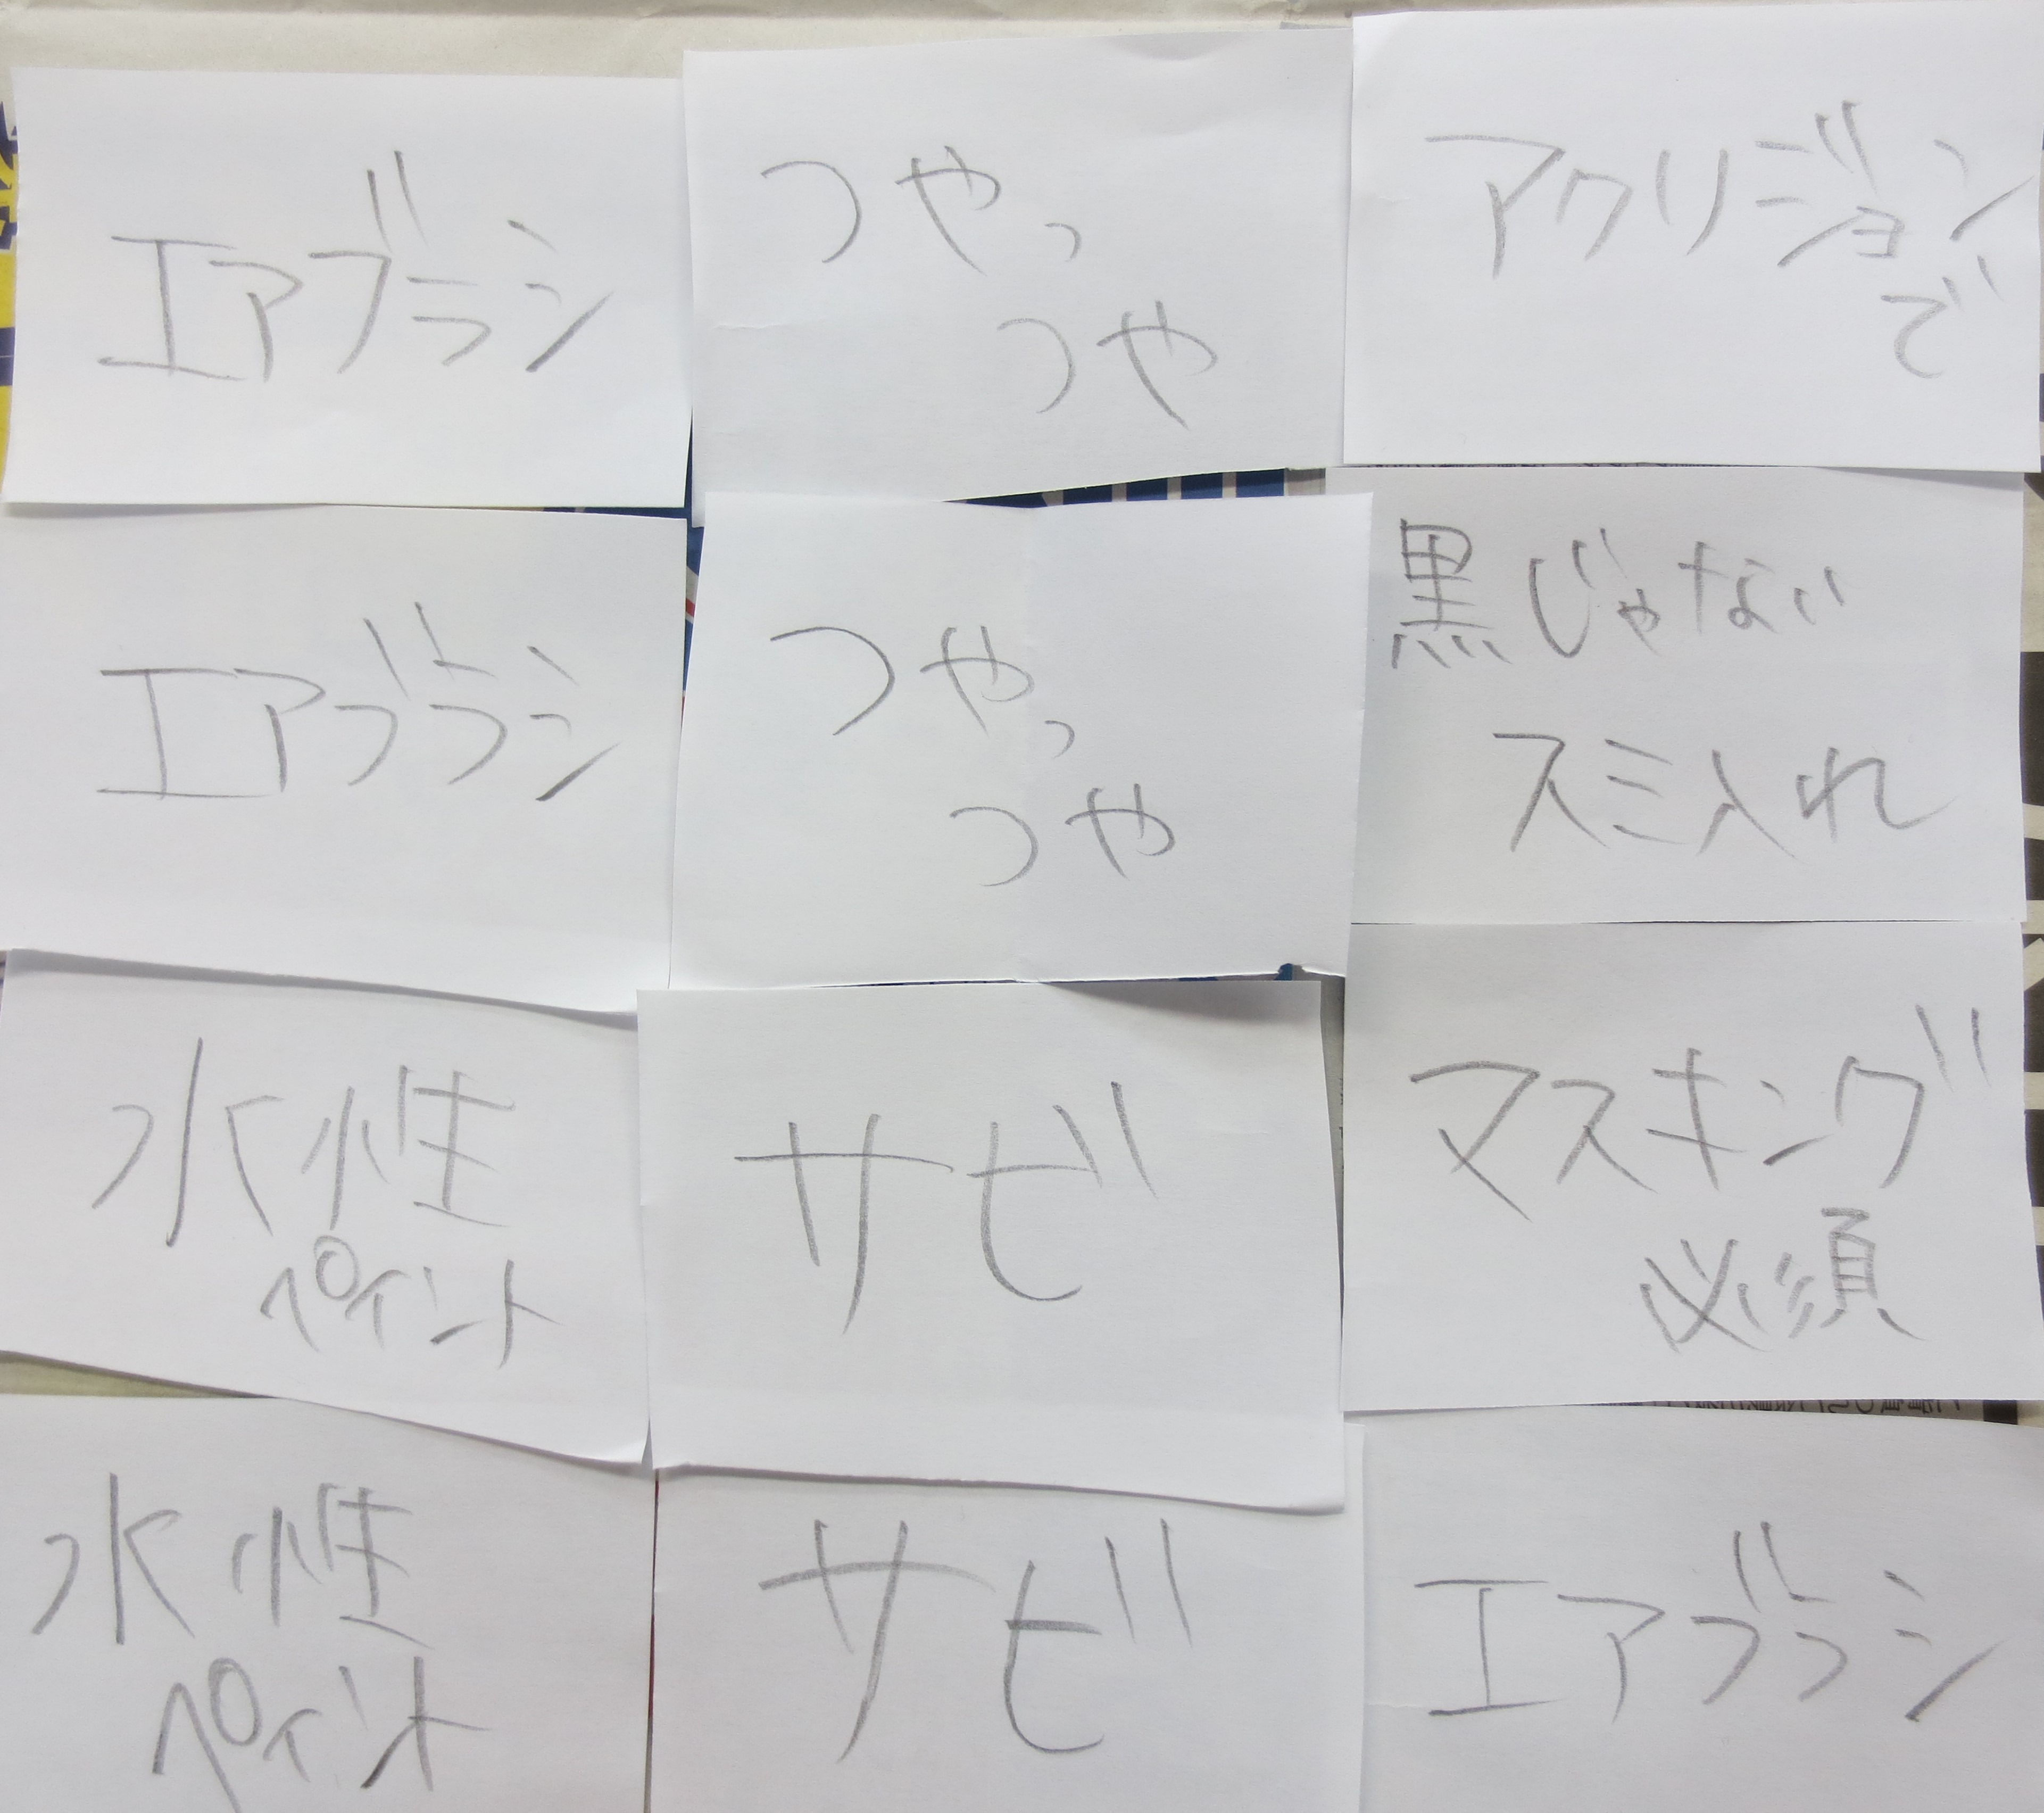 エアブラシ
つやっ
つや
アクリジョン
で
エアブラシ
つやっ
つや
黒じゃない
スミ入れ
水性
ペイント
サビ
マスキング
必須
水性
ペイント
サビ
エアブラシ